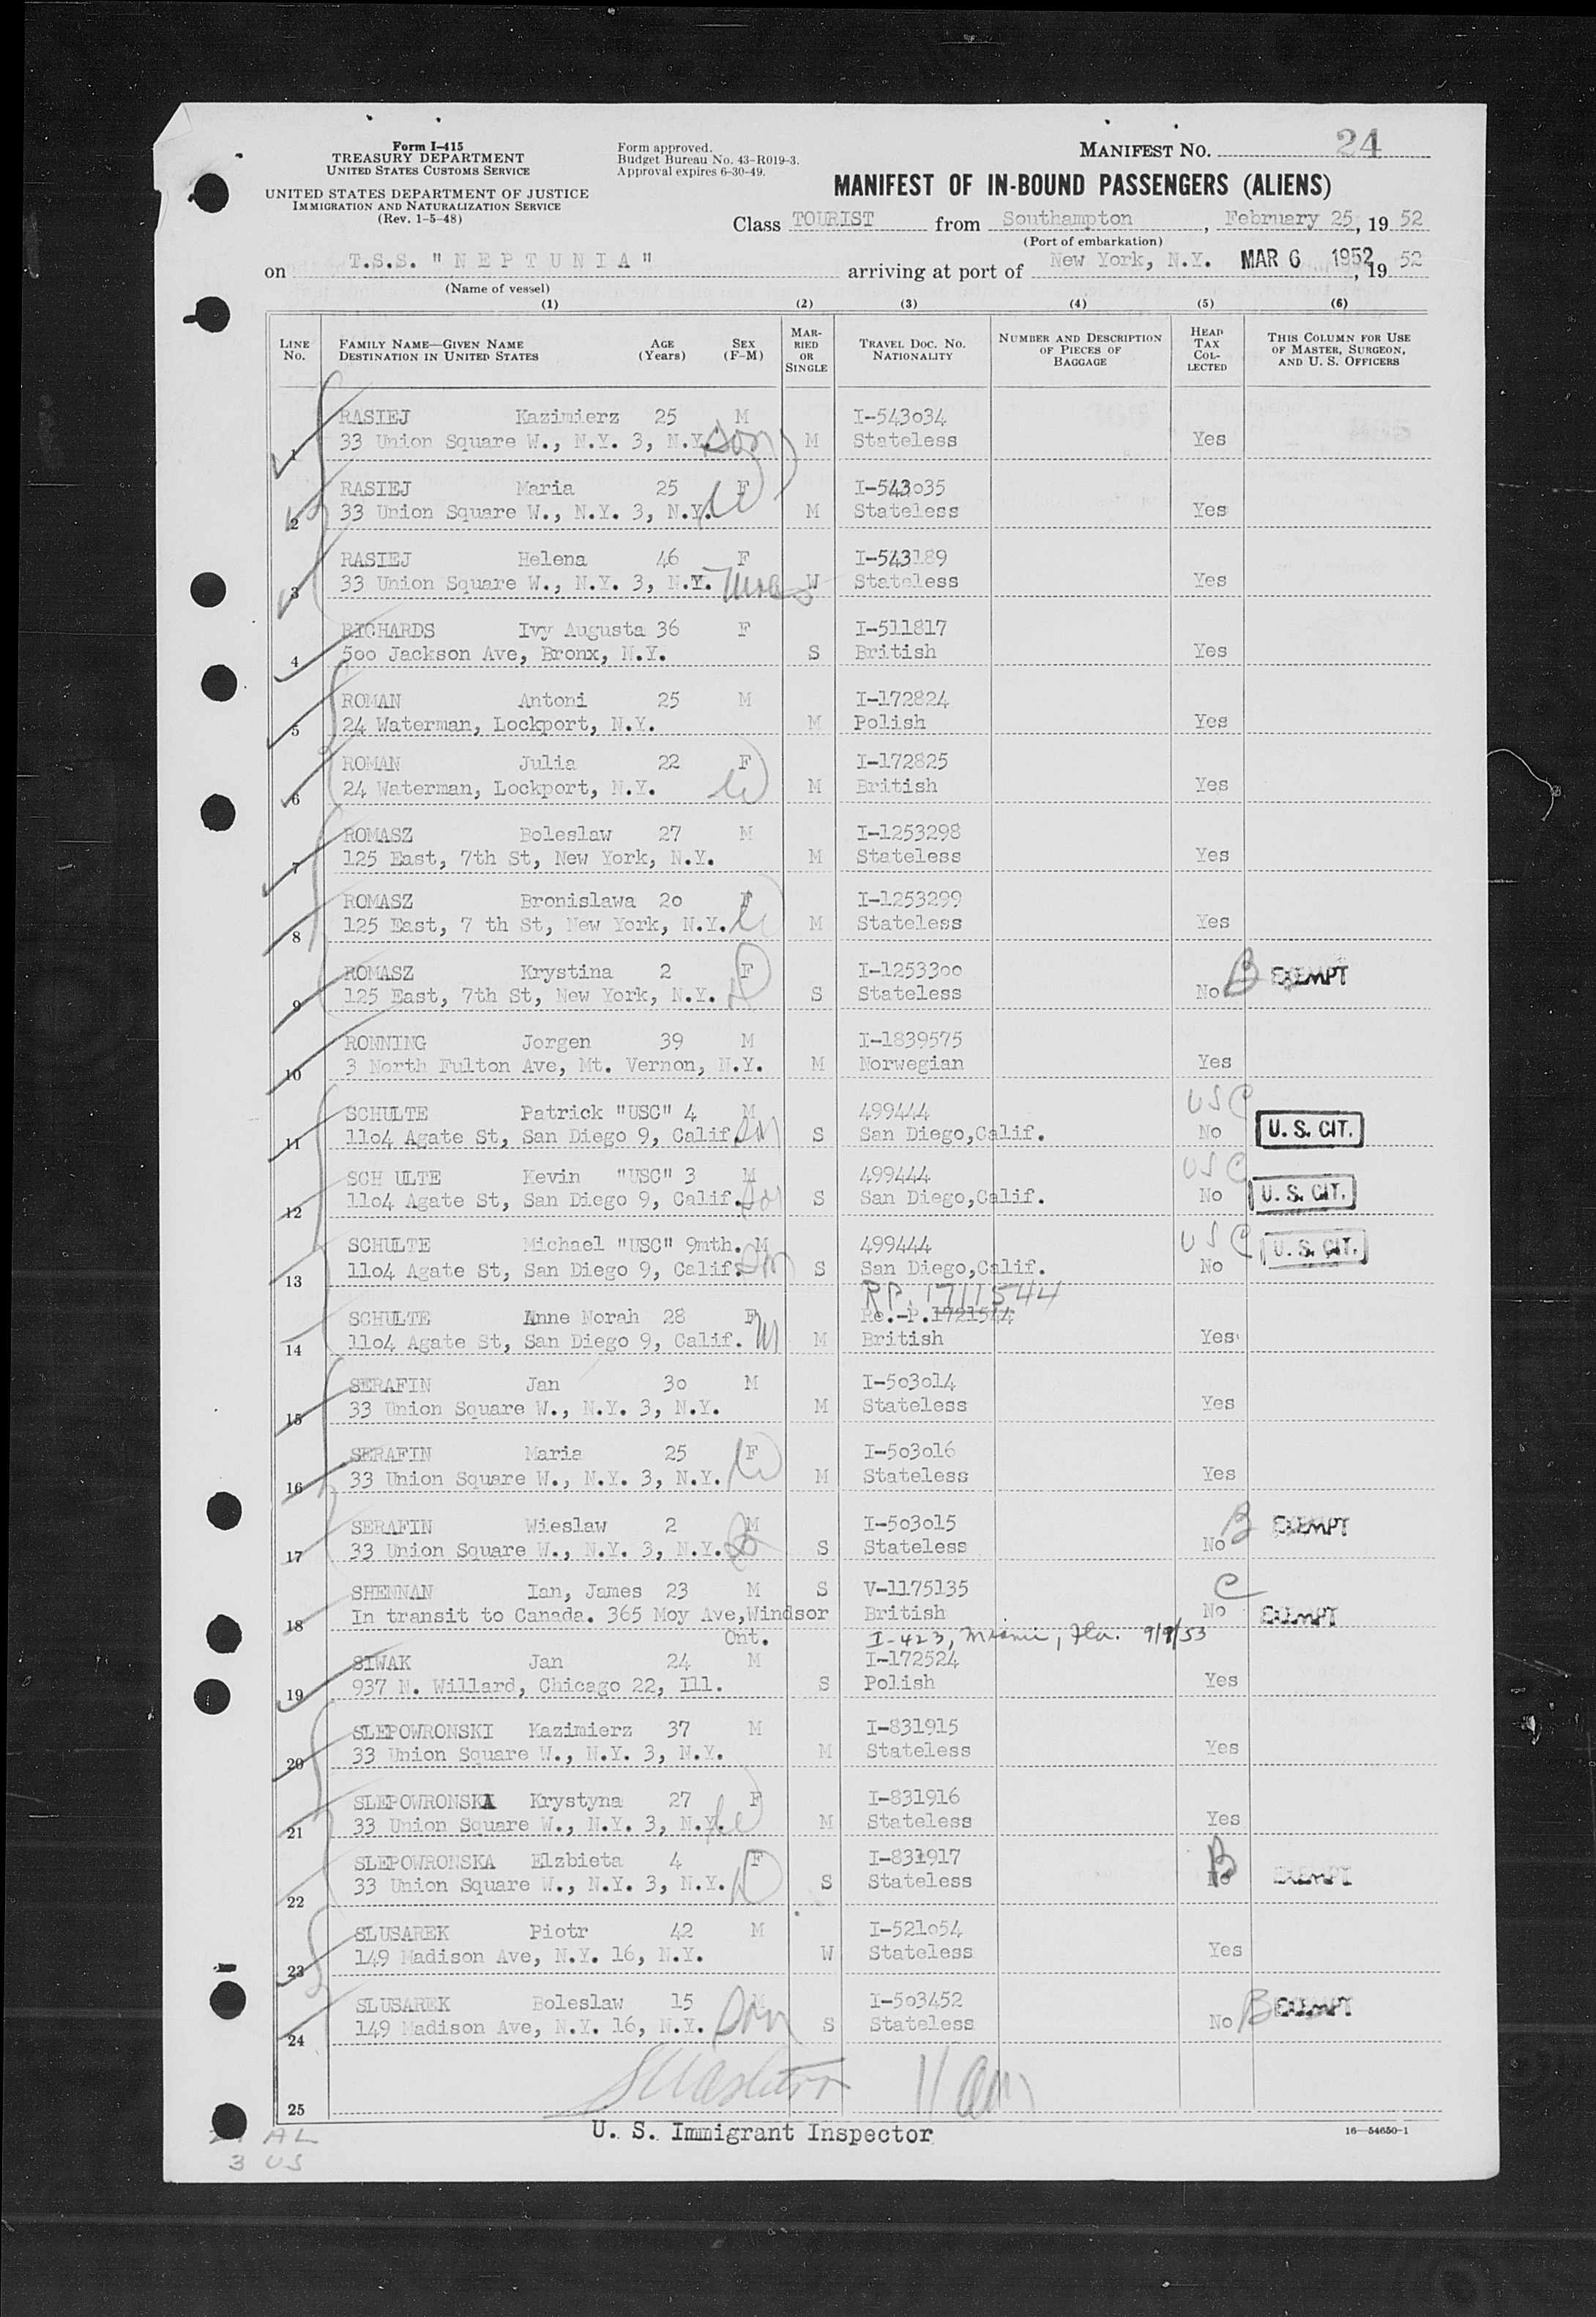 Form I-415
TREASURY DEPARTMENT
UNITED STATES CUSTOMS SERVICE
UNITED STATES DEPARTMENT OF JUSTICE
IMMIGRATION AND NATURALIZATION SERVICE
(Rev. 1-5-48)
Form approved.
Budget Bureau No. 43-R019-3.
Approval expires 6-30-49.
MANIFEST NO. 24
MANIFEST OF IN-BOUND PASSENGERS (ALIENS)
Class TOURIST from Southampton, February 25, 19 52
(Port of embarkation)
on T.S.S. "NEPTUNIA" arriving at port of New York, N.Y. MAR 6 1952, 19 52
(Name of vessel)
(1) (2) (3) (4) (5) (6)
LINE No. FAMILY NAME—GIVEN NAME DESTINATION IN UNITED STATES AGE (Years) SEX (F-M) MARRIED OR SINGLE TRAVEL DOC. NO. NATIONALITY NUMBER AND DESCRIPTION OF PIECES OF BAGGAGE HEAD TAX COLLECTED THIS COLUMN FOR USE OF MASTER, SURGEON, AND U. S. OFFICERS
RASIEJ Kazimierz 25 M I-543034
1 33 Union Square W., N.Y. 3, N.Y. son M Stateless Yes
RASIEJ Maria 25 F I-543035
2 33 Union Square W., N.Y. 3, N.Y. W M Stateless Yes
RASIEJ Helena 46 F I-543189
3 33 Union Square W., N.Y. 3, N.Y. W Stateless Yes
RICHARDS Ivy Augusta 36 F I-511817
4 500 Jackson Ave, Bronx, N.Y. S British Yes
ROMAN Antoni 25 M I-172824
5 24 Waterman, Lockport, N.Y. M Polish Yes
ROMAN Julia 22 F I-172825
6 24 Waterman, Lockport, N.Y. W M British Yes
ROMASZ Boleslaw 27 M I-1253298
7 125 East, 7th St, New York, N.Y. M Stateless Yes
ROMASZ Bronislawa 20 F I-1253299
8 125 East, 7 th St, New York, N.Y. W M Stateless Yes
ROMASZ Krystina 2 F I-1253300 B EXEMPT
9 125 East, 7th St, New York, N.Y. D S Stateless No
RONNING Jorgen 39 M I-1839575
10 3 North Fulton Ave, Mt. Vernon, N.Y. M Norwegian Yes
SCHULTE Patrick "USC" 4 M 499444 USC
11 1104 Agate St, San Diego 9, Calif. Son S San Diego,Calif. No U. S. CIT.
SCH ULTE Kevin "USC" 3 M 499444 USC
12 1104 Agate St, San Diego 9, Calif. Son S San Diego,Calif. No U. S. CIT.
SCHULTE Michael "USC" 9mth. M 499444 USC U. S. CIT.
13 1104 Agate St, San Diego 9, Calif. Son S San Diego,Calif. No
RP. 1711544
SCHULTE Anne Norah 28 F Re.-P.1721544
14 1104 Agate St, San Diego 9, Calif. M M British Yes
SERAFIN Jan 30 M I-503014
15 33 Union Square W., N.Y. 3, N.Y. M Stateless Yes
SERAFIN Maria 25 F I-503016
16 33 Union Square W., N.Y. 3, N.Y. W M Stateless Yes
SERAFIN Wieslaw 2 M I-503015 B EXEMPT
17 33 Union Square W., N.Y. 3, N.Y. S Stateless No
SHENNAN Ian, James 23 M S V-1175135 C
18 In transit to Canada. 365 Moy Ave,Windsor British No EXEMPT
Ont. I-423, Miami, Fla. 9/9/53
SIWAK Jan 24 M I-172524
19 937 N. Willard, Chicago 22, Ill. S Polish Yes
SLEPOWRONSKI Kazimierz 37 M I-831915
20 33 Union Square W., N.Y. 3, N.Y. M Stateless Yes
SLEPOWRONSKA Krystyna 27 F I-831916
21 33 Union Square W., N.Y. 3, N.Y. W M Stateless Yes
SLEPOWRONSKA Elzbieta 4 F I-831917 B
22 33 Union Square W., N.Y. 3, N.Y. D S Stateless No EXEMPT
SLUSAREK Piotr 42 M I-521054
23 149 Madison Ave, N.Y. 16, N.Y. W Stateless Yes
SLUSAREK Boleslaw 15 M I-503452 B EXEMPT
24 149 Madison Ave, N.Y. 16, N.Y. Son S Stateless No
25 11 am
U. S. Immigrant Inspector
16—54650-1
21 AL
3 US